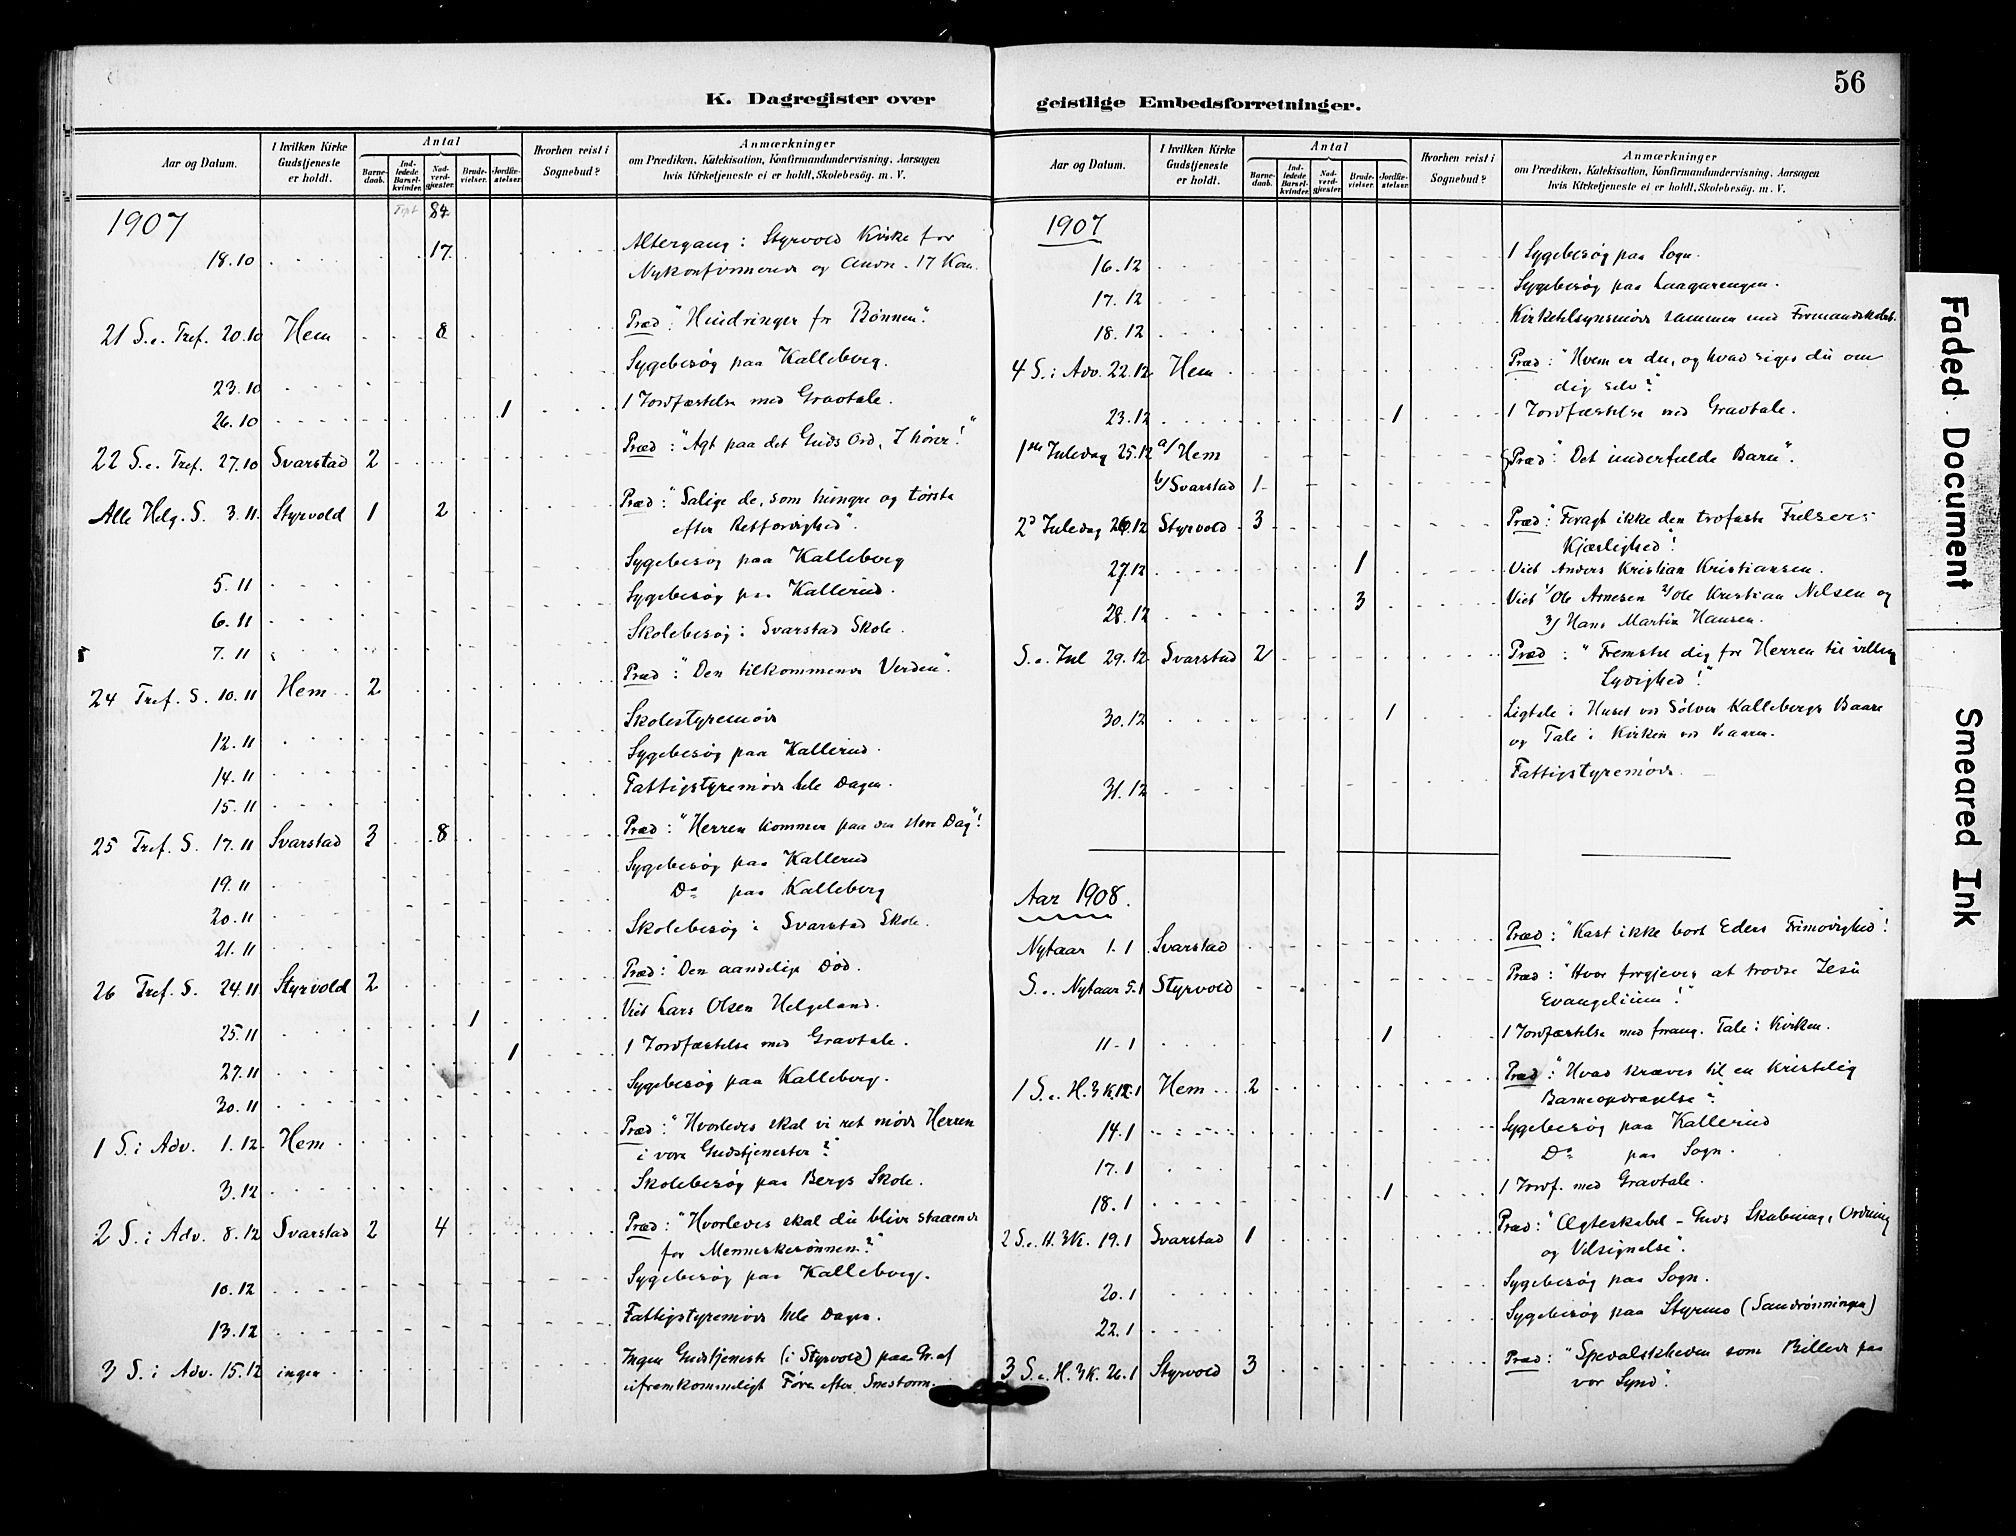 56
K. Dagregister over geistlige Embedsforretninger.
Aar og Datum. I hvilken Kirke Gudstjeneste er holdt. Antal Barnedaab. Indledede Barselkvinder. Nadverdgjæster. Brudevielser. Jordfæstelser. Hvorhen reist i Sognebud? Anmærkninger om Prædiken, Katekisation, Konfirmandundervisning, Aarsagen hvis Kirketjeneste ei er holdt, Skolebesøg. m. V.
1907 84
18.10 17 Altergang i Styrvold Kirke for
Nykonfirmerede og Andre. 17 Kom.
21 S. e. Tref. 20.10 Hem 8 Præd: "Hindringer for Bønnen".
23.10 Sygebesøg paa Kalleberg.
26.10 1 1 Jordfæstelse med Gravtale.
22 S. e. Tref. 27.10 Svarstad 2 Præd: "Agt paa det Guds Ord, I hører!"
Alle Helg. S. 3.11 Styrvold 1 2 Præd: "Salige de, som hungre og tørste
efter Retfærdighed".
5.11 Sygebesøg paa Kalleberg
6.11 Sygebesøg paa Kallerud.
7.11 Skolebesøg i Svarstad Skole.
24 Tref. S. 10.11 Hem 2 Præd: "Den tilkommende Verden".
12.11 Skolestyremøde
14.11 Sygebesøg paa Kallerud.
15.11 Fattigstyremøde hele Dagen.
25 Tref. S. 17.11 Svarstad 3 8 Præd: "Herren kommer paa den store Dag"!
19.11 Sygebesøg paa Kallerud
20.11 Do paa Kalleberg
21.11 Skolebesøg i Svarstad Skole.
26 Tref. S. 24.11 Styrvold 2 Præd: "Den aandelige Død.
25.11 1 Viet Lars Olsen Helgeland.
27.11 1 1 Jordfæstelse med Gravtale.
30.11 Sygebesøg paa Kalleberg.
1 S. i Adv. 1.12 Hem Præd: "Hvorledes skal vi ret møde Herren
i vore Gudstjenester?"
3.12 Skolebesøg paa Bergs Skole.
2 S. i Adv. 8.12 Svarstad 2 4 Præd: "Hvorledes skal du blive staaende
for Menneskesønnen?"
10.12 Sygebesøg paa Kalleberg.
13.12 Fattigstyremøde hele Dagen.
3 S. i Adv. 15.12 ingen Ingen Gudstjeneste (i Styrvold) paa Gr. af
ufremkommeligt Føre efter Snestorm.
Aar og Datum. I hvilken Kirke Gudstjeneste er holdt. Antal Barnedaab. Indledede Barselkvinder. Nadverdgjæster. Brudevielser. Jordfæstelser. Hvorhen reist i Sognebud? Anmærkninger om Prædiken, Katekisation, Konfirmandundervisning, Aarsagen hvis Kirketjeneste ei er holdt, Skolebesøg. m. V.
1907
16.12 1 Sygebesøg paa Sogn.
17.12 Sygebesøg paa
18.12 Kirketilsynsmøde sammen med Formandskabet.
4 S. i Adv. 22.12 Hem Præd: "Hvem er du, og hvad siger du om
dig selv?"
23.12 1 1 Jordfæstelse med Gravtale.
1ste Juledag 25.12 a/ Hem Præd: "Det underfulde Barn".
b/ Svarstad 1
2d Juledag 26.12 Styrvold 3 Præd: "Foragt ikke den trofaste Frelsers
Kjærlighed"!
27.12 1 Viet Anders Kristian Kristiansen.
28.12 3 Viet 1/ Ole Arnesen 2/ Ole Kristian Nilsen og
3/ Hans Martin Hansen.
S. e. Jul 29.12 Svarstad 2 Præd: "Fremstil dig for Herren til villig
Lydighed!"
30.12 1 Ligtale i Huset ved Sølver Kallebergs Baare
og Tale i Kirken ved Baaren.
31.12 Fattigstyremøde.
Aar 1908.
Nytaar 1.1 Svarstad Præd: "Kast ikke bort Eders Frimodighed"!
S. e. Nytaar 5.1 Styrvold Præd: "Hvor forgjæves at trodse Jesu
Evangelium!"
11.1 1 1 Jordfæstelse med forang. Tale i Kirken.
1 S. e. H.3K. 12.1 Hem 2 Præd: "Hvad kræves til en kristelig
Barneopdragelse"?
14.1 Sygebesøg paa Kallerud
17.1 Do paa Sogn.
18.1 1 1 Jordf. med Gravtale.
2 S. e. H.3K. 19.1 Svarstad 1 Præd: "Ægteskabet – Guds Skabning, Ordning
og Velsignelse".
20.1 Sygebesøg paa Sogn.
22.1 Sygebesøg paa Styrmo (Sandrønningen)
3 S. e. H.3K. 26.1 Styrvold 3 Præd: "Spedalskheden som Billede paa
vor Synd".
Faded Document
Smeared Ink